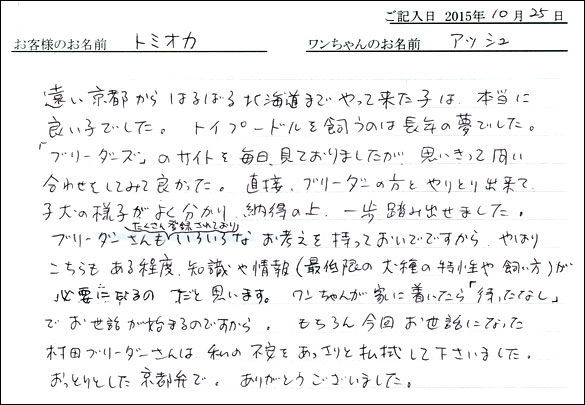 ご記入日 2015年 10月 25日
お客様のお名前 トミオカ ワンちゃんのお名前 アッシュ
遠い京都からはるばる北海道までやって来た子は、本当に
良い子でした。トイプードルを飼うのは長年の夢でした。
「ブリーダーズ」のサイトを毎日、見ておりましたが、思いきって問い
合わせをしてみて良かった。直接、ブリーダーの方とやりとり出来て、
子犬の様子がよく分かり、納得の上、一歩踏み出せました。
たくさん登録されており
ブリーダーさんもいろいろなお考えを持っておいでですから、やはり
こちらもある程度、知識や情報(最低限の犬種の特性や飼い方)が
必要になるのだと思います。ワンちゃんが家に着いたら「待ったなし」
でお世話が始まるのですから。もちろん今回お世話になった
村田ブリーダーさんは、私の不安をあっさりと払拭して下さいました。
おっとりとした京都弁で。ありがとうございました。